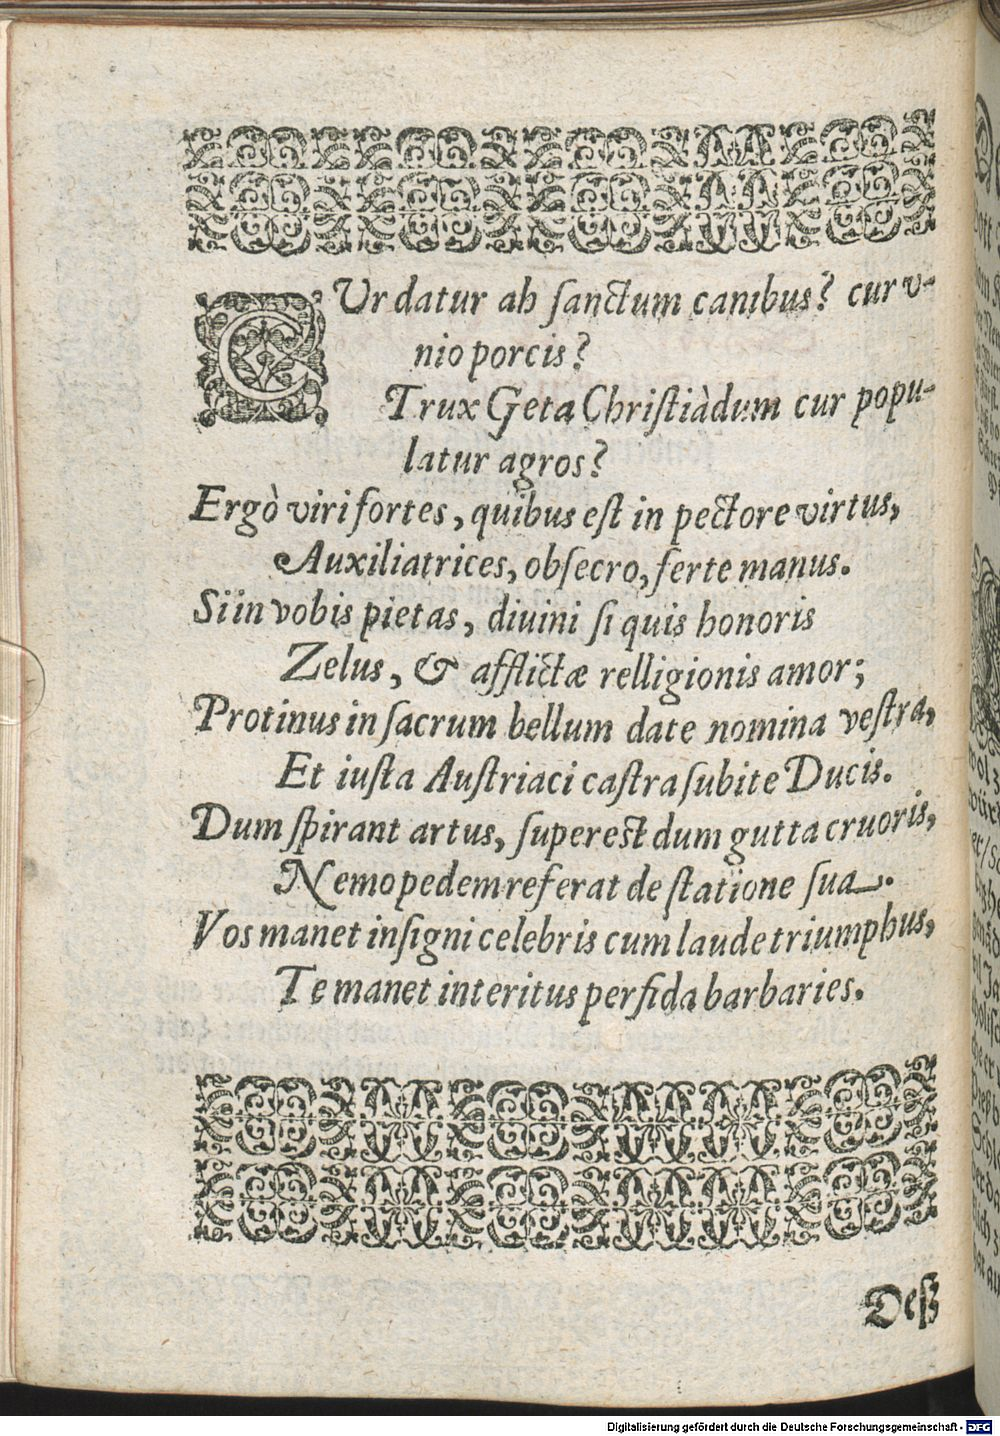 CUr datur ah sanctum canibus? cur v-
nio porcis?
Trux Geta Christiàdum cur popu-
latur agros?
Ergò viri fortes, quibus est in pectore virtus,
Auxiliatrices, obsecro, ferte manus.
Si in vobis pietas, diuini si quis honoris
Zelus, & afflictæ relligionis amor;
Protinus in sacrum bellum date nomina vestra,
Et iusta Austriaci castra subite Ducis.
Dum spirant artus, superest dum gutta cruoris,
Nemo pedem referat de statione sua.
Vos manet insigni celebris cum laude triumphus,
Te manet interitus perfida barbaries.
Deß
Digitalisierung gefördert durch die Deutsche Forschungsgemeinschaft - DFG